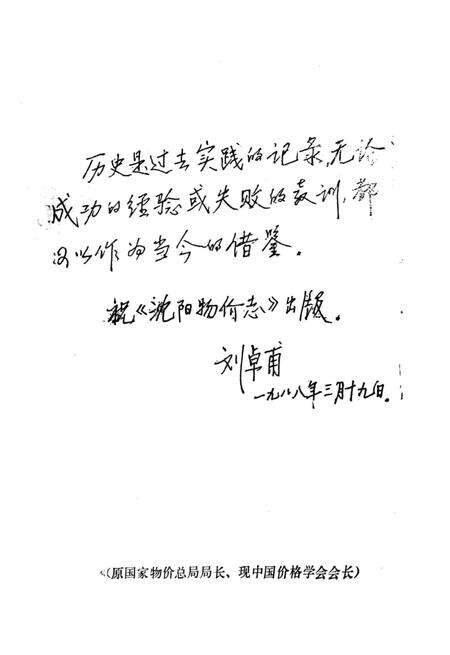 历史是过去实践的记录,无论
成功的经验或失败的教训,都
以作为当今的借鉴。
祝《沈阳物价志》出版。
刘卓甫
一九八八年三月十九日.
(原国家物价总局局长、现中国价格学会会长)